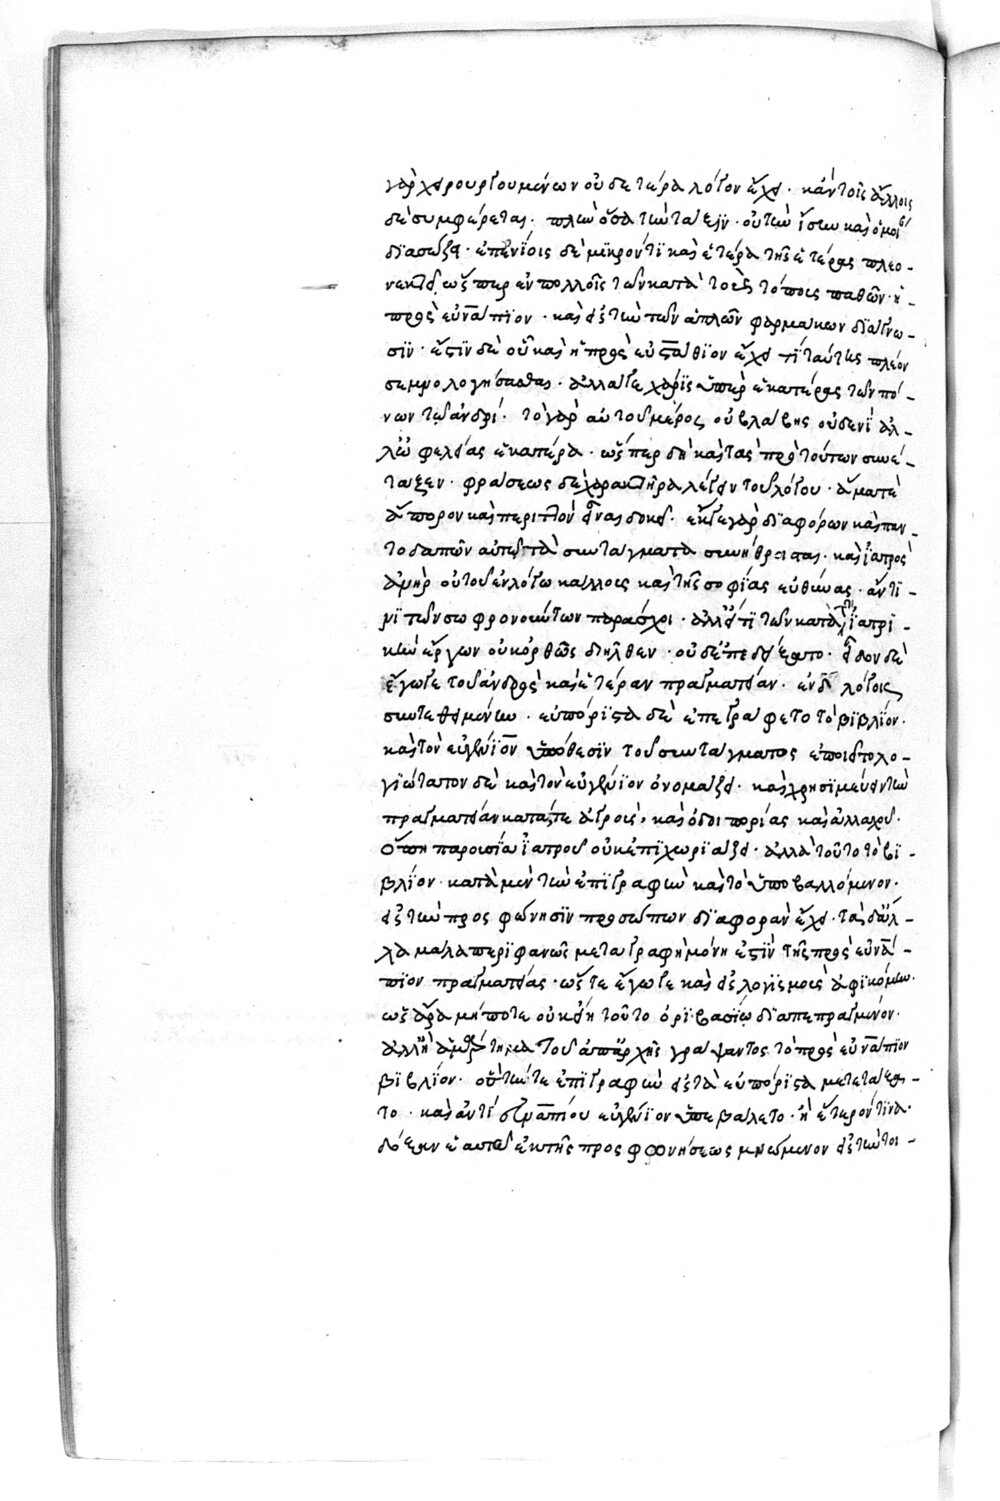 γὰρ χειρουργουμένων οὐδετέρα λόγον ἔχει · κἂν τοῖς ἄλλοις
δὲ συμφέρεται · πλὴν ὅσα τὴν τάξιν · οὕτω ἴσην καὶ ὁμοί
διασώζει · ἐπενίοις δὲ μικρόν τι καὶ ἑτέρα τῆς ἑτέρας πλεο-
νεκτεῖ ὥσπερ ἐν πολλοῖς τῶν κατὰ τοὺς τόπους παθῶν · ἡ
πρὸς εὐνάπιον · καὶ εἰς τὴν τῶν ἁπλῶν φαρμάκων διάγνω-
σιν · ἔστιν δὲ οὗ καὶ ἡ πρὸς εὐστάθιον ἔχει τι ταύτης πλέον
σεμνολογήσασθαι · ἀλλά γε χάρις ὑπὲρ ἑκατέρας τῶν πό-
νων τῷ ἀνδρί · τὸ γὰρ αὐτοῦ μέρος οὐ βλάβης οὐδενὶ ἀλ-
λ' ὠφελείας ἑκατέρα · ὥσπερ δὴ καὶ τὰς πρὸ τούτων συνέ-
ταξεν · φράσεως δὲ χαρακτῆρα λέγειν τοῦ λόγου · ἅμα τὲ
ἄπορον καὶ περιττὸν εἶναι δοκεῖ · ἔκ τε γὰρ διαφόρων καὶ παν-
τοδαπῶν αὐτῷ τὰ συντάγματα συνήθροισται · καὶ ἰατρὸς
ἀνὴρ οὐ τοῦ ἐν λόγω κάλλους καὶ τῆς σοφίας εὐθύνας · ἄν τι-
νι τῶν σωφρονούντων παράσχοι · ἀλλ' εἴ τι τῶν κατὰ τὴν ἰατρι-
κὴν ἔργων οὐκ ὀρθῶς διῆλθεν · οὐδέπω διέγραπτο · εἶδον δὲ
ἔγωγε τοῦ ἀνδρὸς καὶ ἑτέραν πραγματείαν · ἐν λόγοις
συντεθειμένην · εὐπόριστα δὲ ἐπεγράφετο τὸ βιβλίον ·
καὶ τὸν εὐγένιον ὑπόθεσιν τοῦ συντάγματος ἐποιεῖτο λο-
γιώτατον δὲ καὶ τὸν εὐγένιον ὀνομάζει · καὶ χρησιμεύειν τὴν
πραγματείαν κατά τε ἀγροὺς · καὶ ὁδοιπορίας καὶ ἀλλαχοῦ ·
οὗ ἡ παρουσία ἰατροῦ οὐκ ἐπιχωριάζει · ἀλλὰ τοῦτο τὸ βι-
βλίον · κατὰ μὲν τὴν ἐπιγραφὴν καὶ τὸ ὑποβαλλόμενον ·
εἰς τὴν προσφώνησιν προσώπων διαφορὰν ἔχει · τὰ δ' ἄλ-
λα μάλα περιφανῶς μεταγραφὴ μόνη ἐστὶν τῆς πρὸς εὐνά-
πιον πραγματείας · ὥστε ἔγωγε καὶ εἰς λογισμοὺς ἀφικόμην ·
ὡς ἄρα μήποτε οὐκ εἴη τοῦτο ὀριβασίω διαπεπραγμένον ·
τοῦ ἀπαρχῆς γράψαντος τὸ πρὸς εὐνάπιον
βιβλίον · οὗ τήν τε ἐπιγραφὴν εἰς τὰ εὐπόριστα μετετάξα-
το · καὶ ἀντὶ εὐναπίου εὐγένιον ὑπεβάλετο · ἢ ἕτερόν τινα
δόξαν ἑαυτῷ ἐκ τῆς προσφωνήσεως μνώμενον εἰς τὴν τοι-